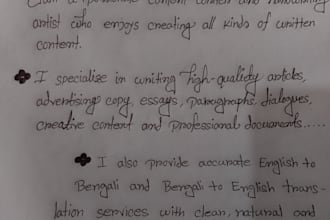 artist who enjoys creating all kinds of written
content.
I specialise in writing high-quality articles,
advertising copy, essays, paragraphs, dialogues,
creative content and professional documents.....
I also provide accurate English to
Bengali and Bengali to English trans-
lation services with clean, natural and